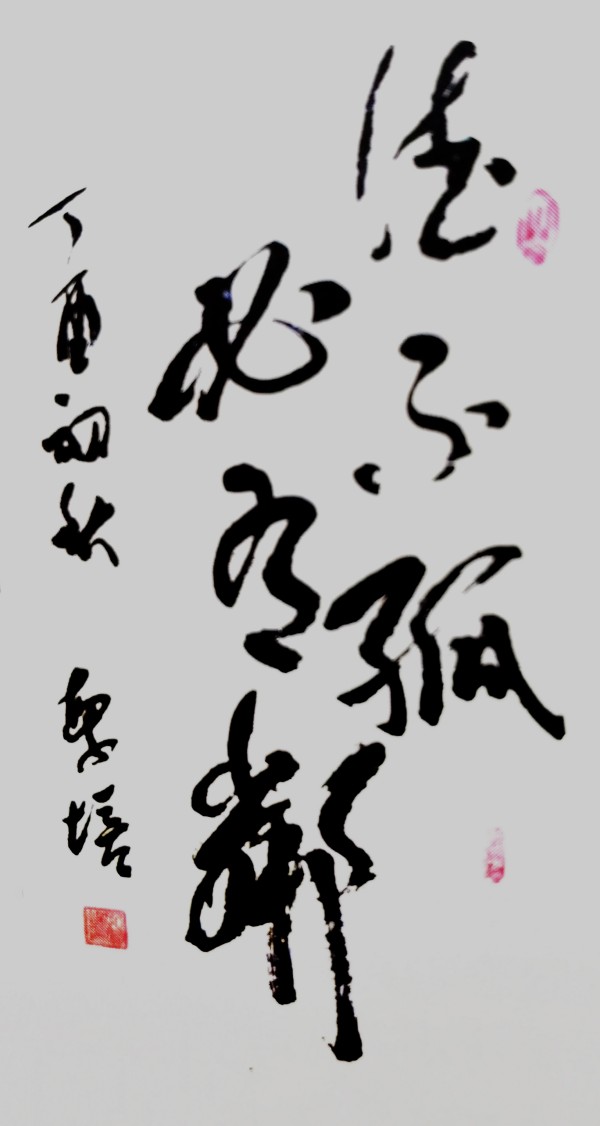 德不孤
必有鄰
丁酉初秋 黎培